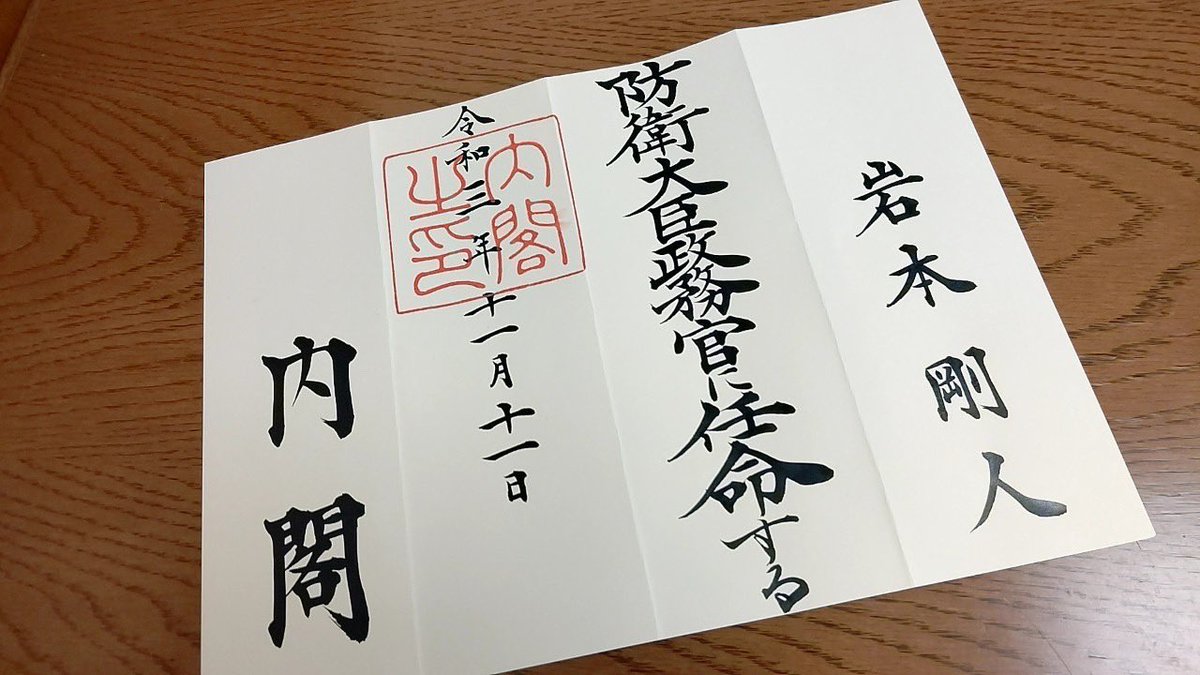 岩本剛人
防衛大臣政務官に任命する
令和三年十一月十一日
内閣之印
内閣